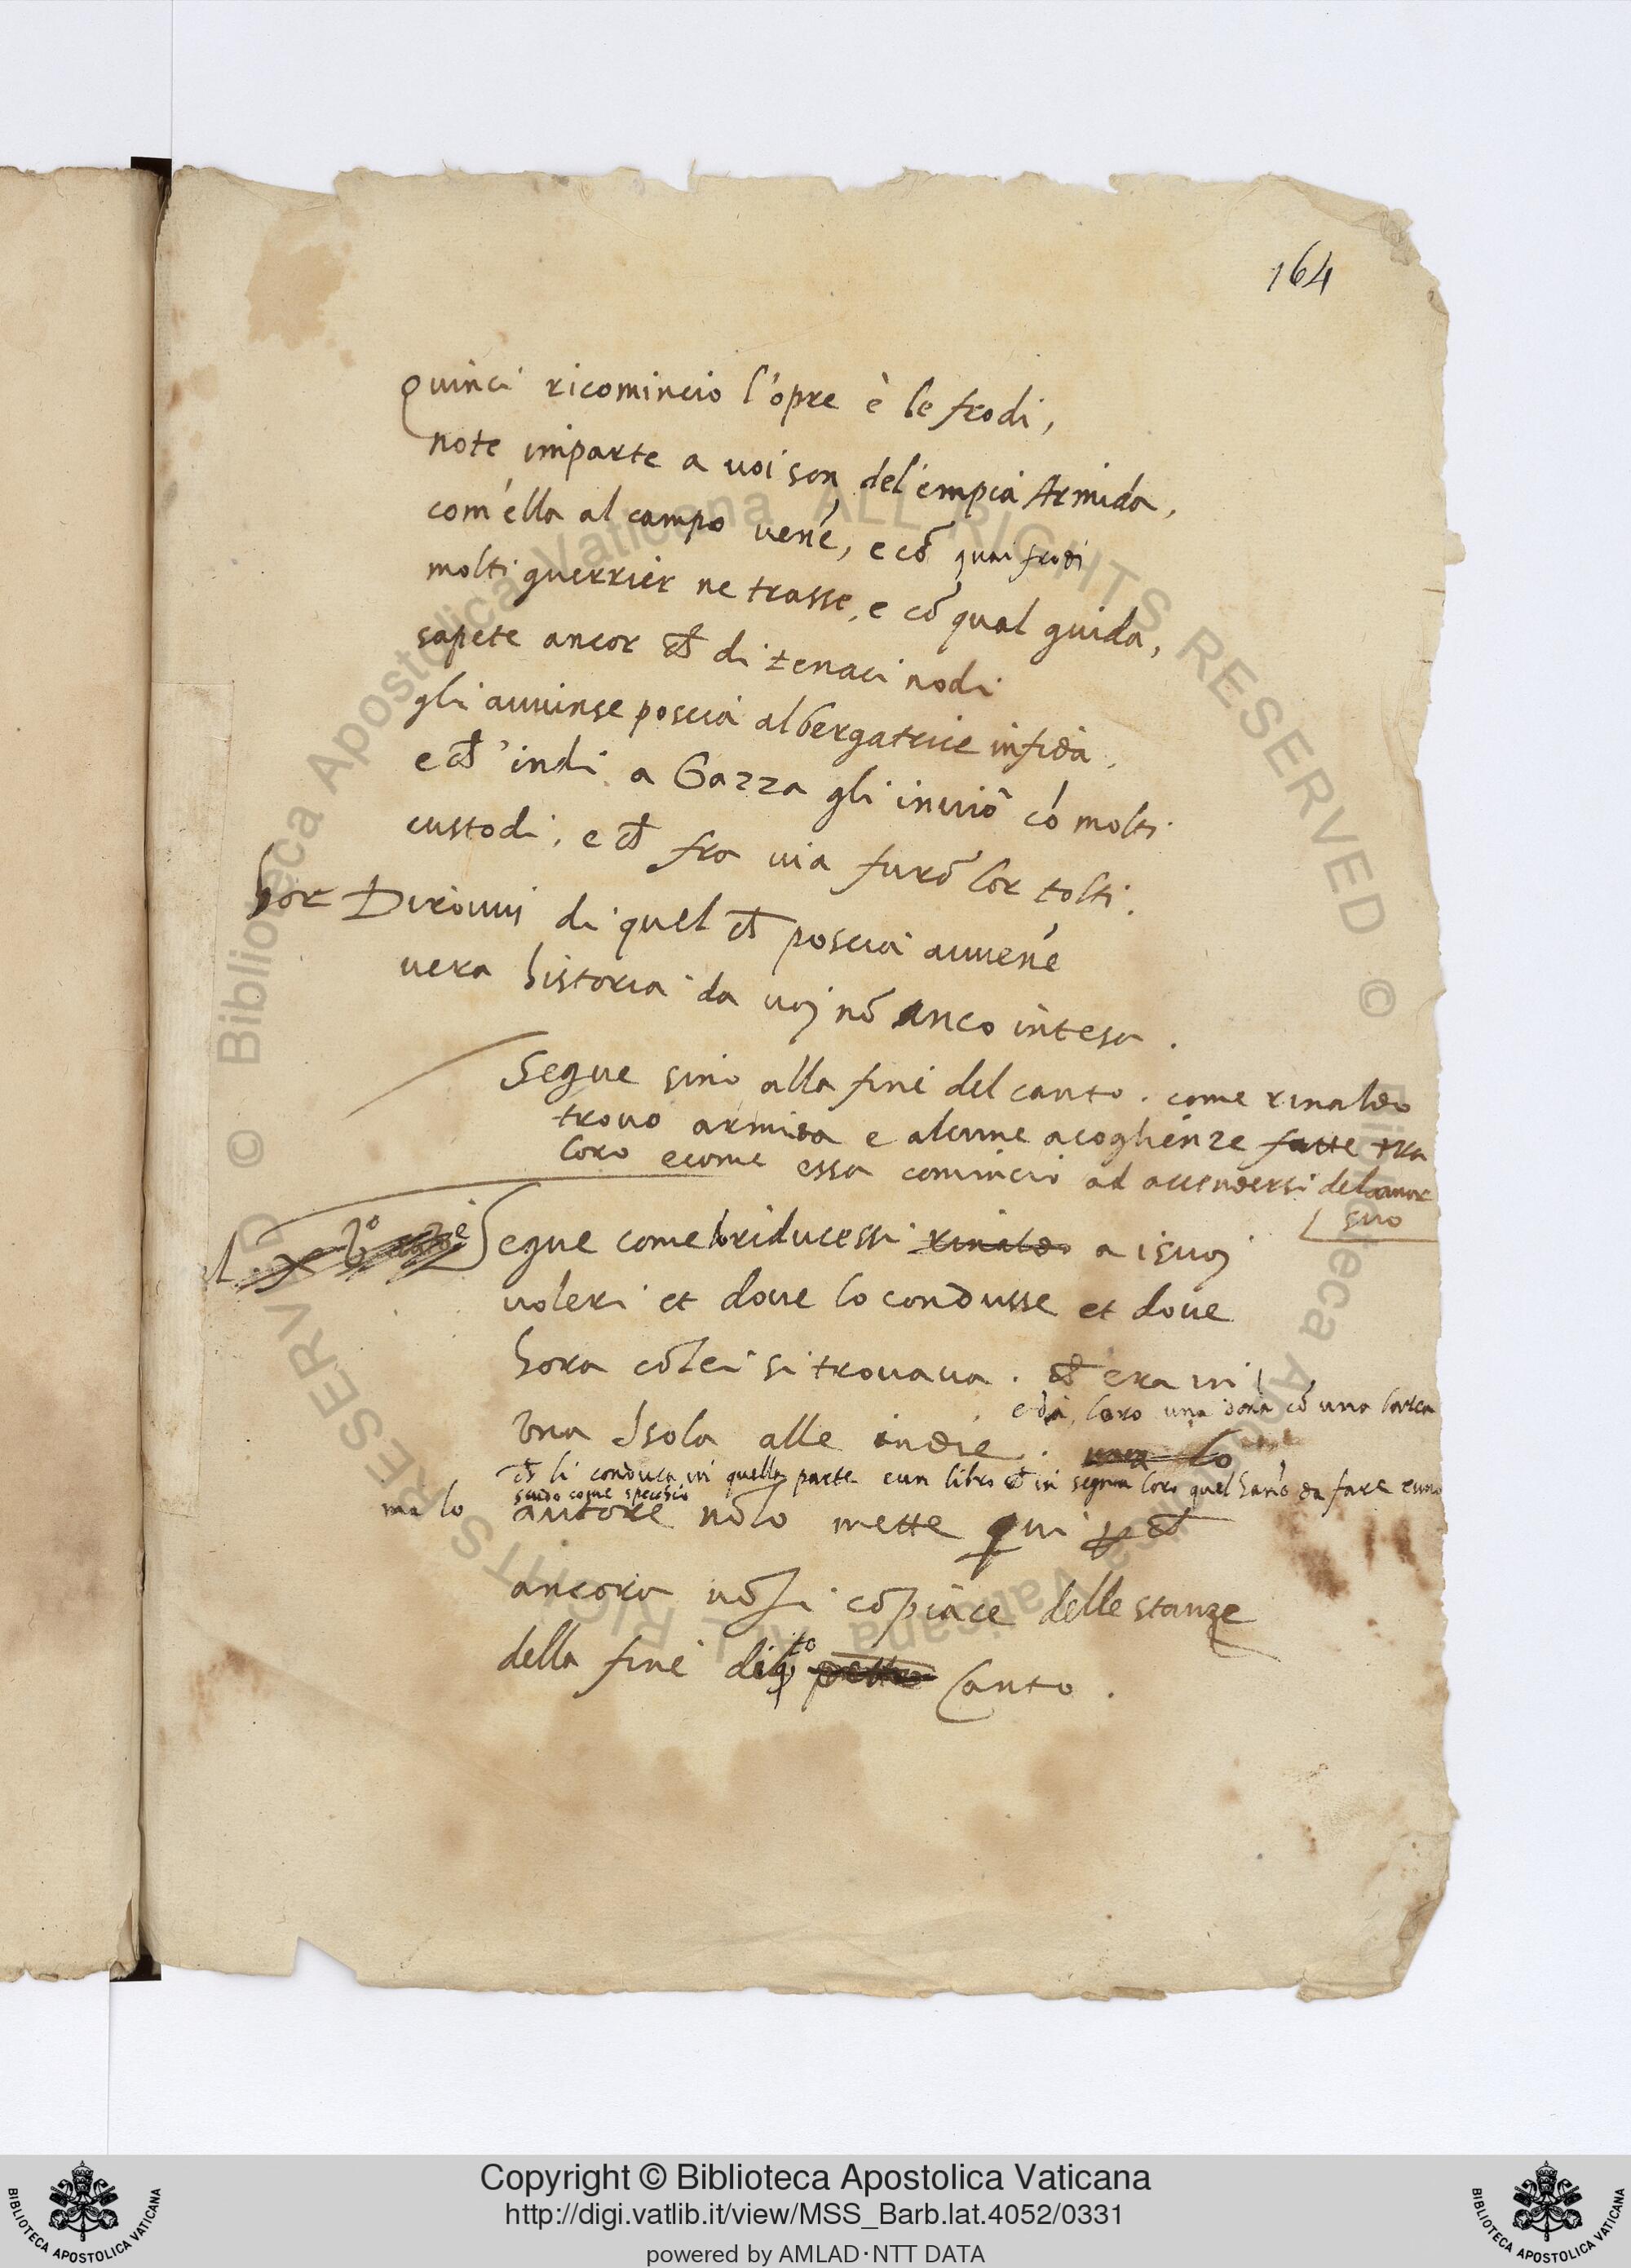 164
Quinci ricomincio l'opre è le frodi,
note imparte a voi son del'empia Armida,
com'ella al campo vené, e cō quai frodi
molti guerrier ne trasse, e cō qual guida,
sapete ancor ch̄ di tenaci nodi
gli avvinse poscia albergatrice infida,
e ch̄ 'indi a Gazza gli inviò cō molti
custodi, e ch̄ fra via furō lor tolti.
hor Dirovvi di quel ch̄ poscia avvené
vera historia da voj nō anco intesa.
Segue sino alla fine del canto. come rinaldo
trovo armida e alcune acoglienze fatte tra
loro e come essa comincio ad accendersi del amor
suo
Segue come lo riducessi rinaldo a i suoj
voleri et dove lo condusse et dove
hora cō lei si trovava. ch̄ era in
e dà loro una dona cō una barca
Una Isola alle indie. lo
ch̄ li conduca in quella parte e un libro ch̄ in segna loro quel hano da fare e uno
scudo come specchio
ma lo autore nō lo mette qui p ch̄
ancora nō si cōpiace delle stanze
della fine di q̄to Canto.
Copyright © Biblioteca Apostolica Vaticana
http://digi.vatlib.it/view/MSS_Barb.lat.4052/0331
powered by AMLAD·NTT DATA
BIBLIOTECA APOSTOLICA VATICANA
BIBLIOTECA APOSTOLICA VATICANA
© Biblioteca Apostolica Vaticana ALL RIGHTS RESERVED © Biblioteca Apostolica Vaticana ALL RIGHTS RESERVED